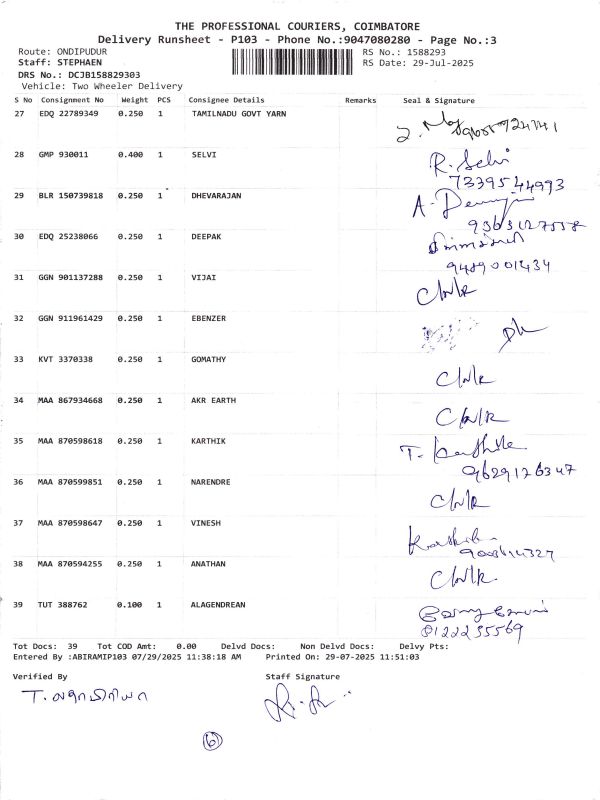 THE PROFESSIONAL COURIERS, COIMBATORE
Delivery Runsheet - P103 - Phone No.:9047080280 - Page No.:3
Route: ONDIPUDUR RS No.: 1588293
Staff: STEPHAEN RS Date: 29-Jul-2025
DRS No.: DCJB158829303
Vehicle: Two Wheeler Delivery
S No Consignment No Weight PCS Consignee Details Remarks Seal & Signature
27 EDQ 22789349 0.250 1 TAMILNADU GOVT YARN
28 GMP 930011 0.400 1 SELVI R. Selvi
7339544993
29 BLR 150739818 0.250 1 DHEVARAJAN
9363127558
30 EDQ 25238066 0.250 1 DEEPAK
9489001434
31 GGN 901137288 0.250 1 VIJAI
32 GGN 911961429 0.250 1 EBENZER
33 KVT 3370338 0.250 1 GOMATHY
34 MAA 867934668 0.250 1 AKR EARTH
35 MAA 870598618 0.250 1 KARTHIK
9629176347
36 MAA 870599851 0.250 1 NARENDRE
37 MAA 870598647 0.250 1 VINESH
38 MAA 870594255 0.250 1 ANATHAN
39 TUT 388762 0.100 1 ALAGENDREAN
Tot Docs: 39 Tot COD Amt: 0.00 Delvd Docs: Non Delvd Docs: Delvy Pts:
Entered By :ABIRAMIP103 07/29/2025 11:38:18 AM Printed On: 29-07-2025 11:51:03
Verified By Staff Signature
6